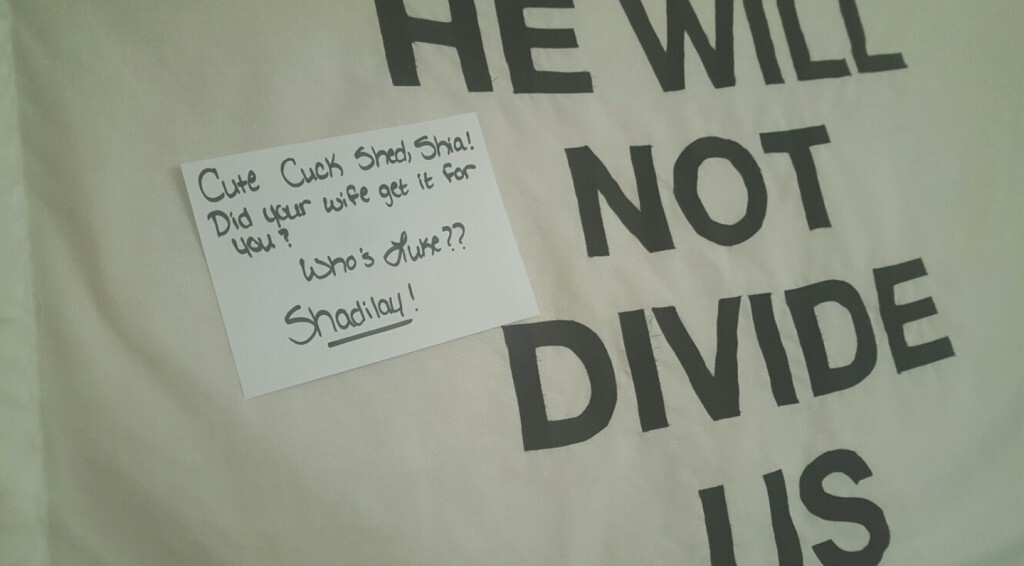 HE WILL
NOT
DIVIDE
US
Cute Cuck Shed, Shia!
Did your wife get it for
you?
Who's Luke??
Shadilay!